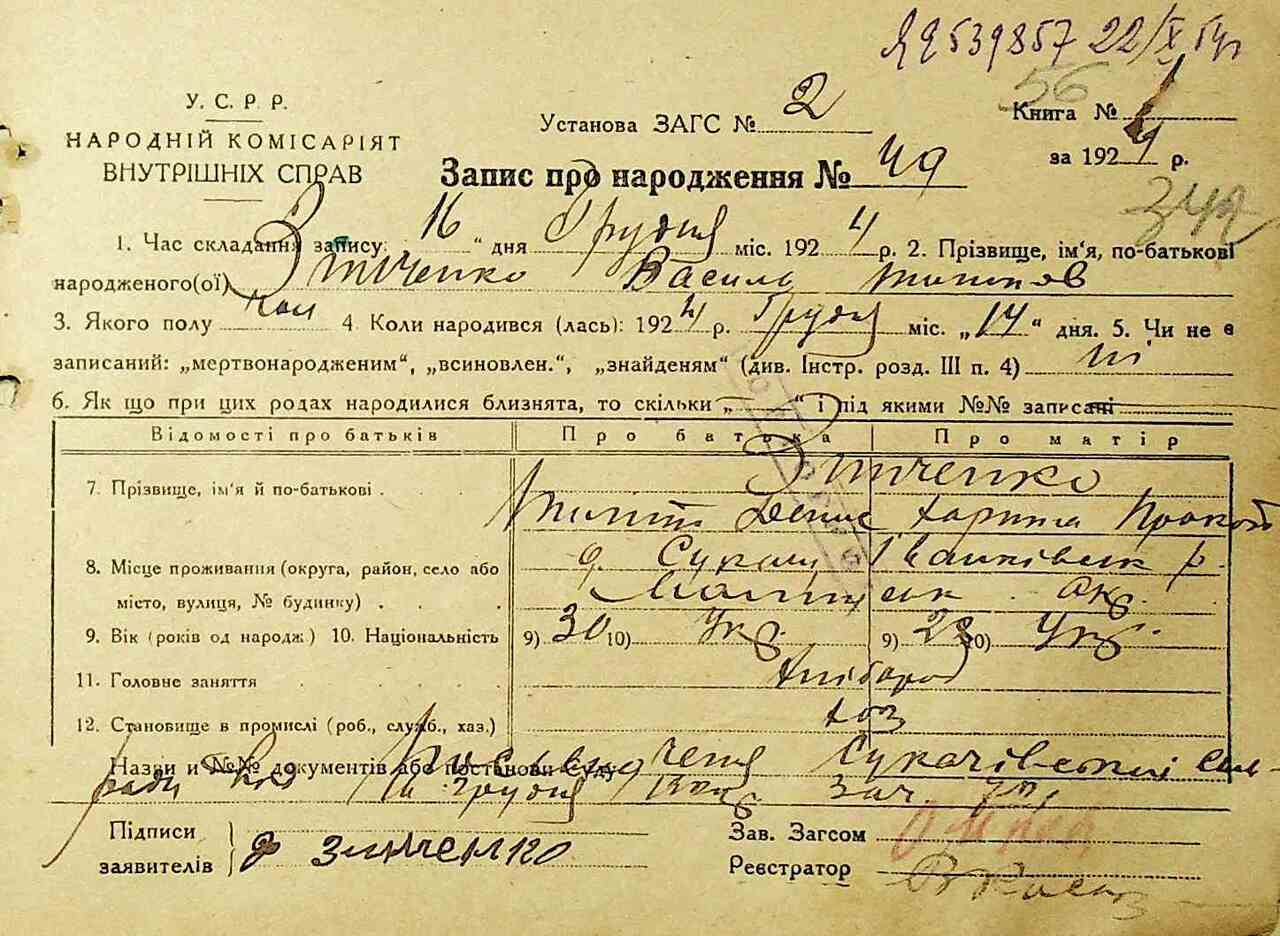 ЯЯ 539857 22/X 54р
56
У. С. Р. Р.
НАРОДНІЙ КОМІСАРІЯТ
ВНУТРІШНІХ СПРАВ
Установа ЗАГС № 2
Книга № 1
за 1924 р.
Запис про народження № 49
342
1. Час складання запису: 16 " дня Грудня міс. 1924 р. 2. Прізвище, ім'я, по-батькові
народженого(ої) Зінченко Василь
3. Якого полу чол 4. Коли народився (лась): 1924 р. Грудня міс. „14" дня. 5. Чи не є
записаний: „мертвонародженим", „всиновлен.", „знайденям" (див. Інстр. розд. III п. 4) ні
6. Як що при цих родах народилися близнята, то скільки „ " і під якими №№ записані
Відомості про батьків Про батька Про матір
7. Прізвище, ім'я й по-батькові Зінченко
Денис Прокоп
8. Місце проживання (округа, район, село або с. Сукачі Іванківськ р.
місто, вулиця, № будинку) окр.
9. Вік (років од народж.) 10. Національність 9) 30 10) Укр. 9) 28 10) Укр.
11. Головне заняття хлібороб
12. Становище в промислі (роб., служб., хаз.) хоз
Назви и №№ документів або постанови Суду Сукачівської сель-
ради грудня
Підписи
заявителів
Зинченко
Зав. Загсом
Реєстратор